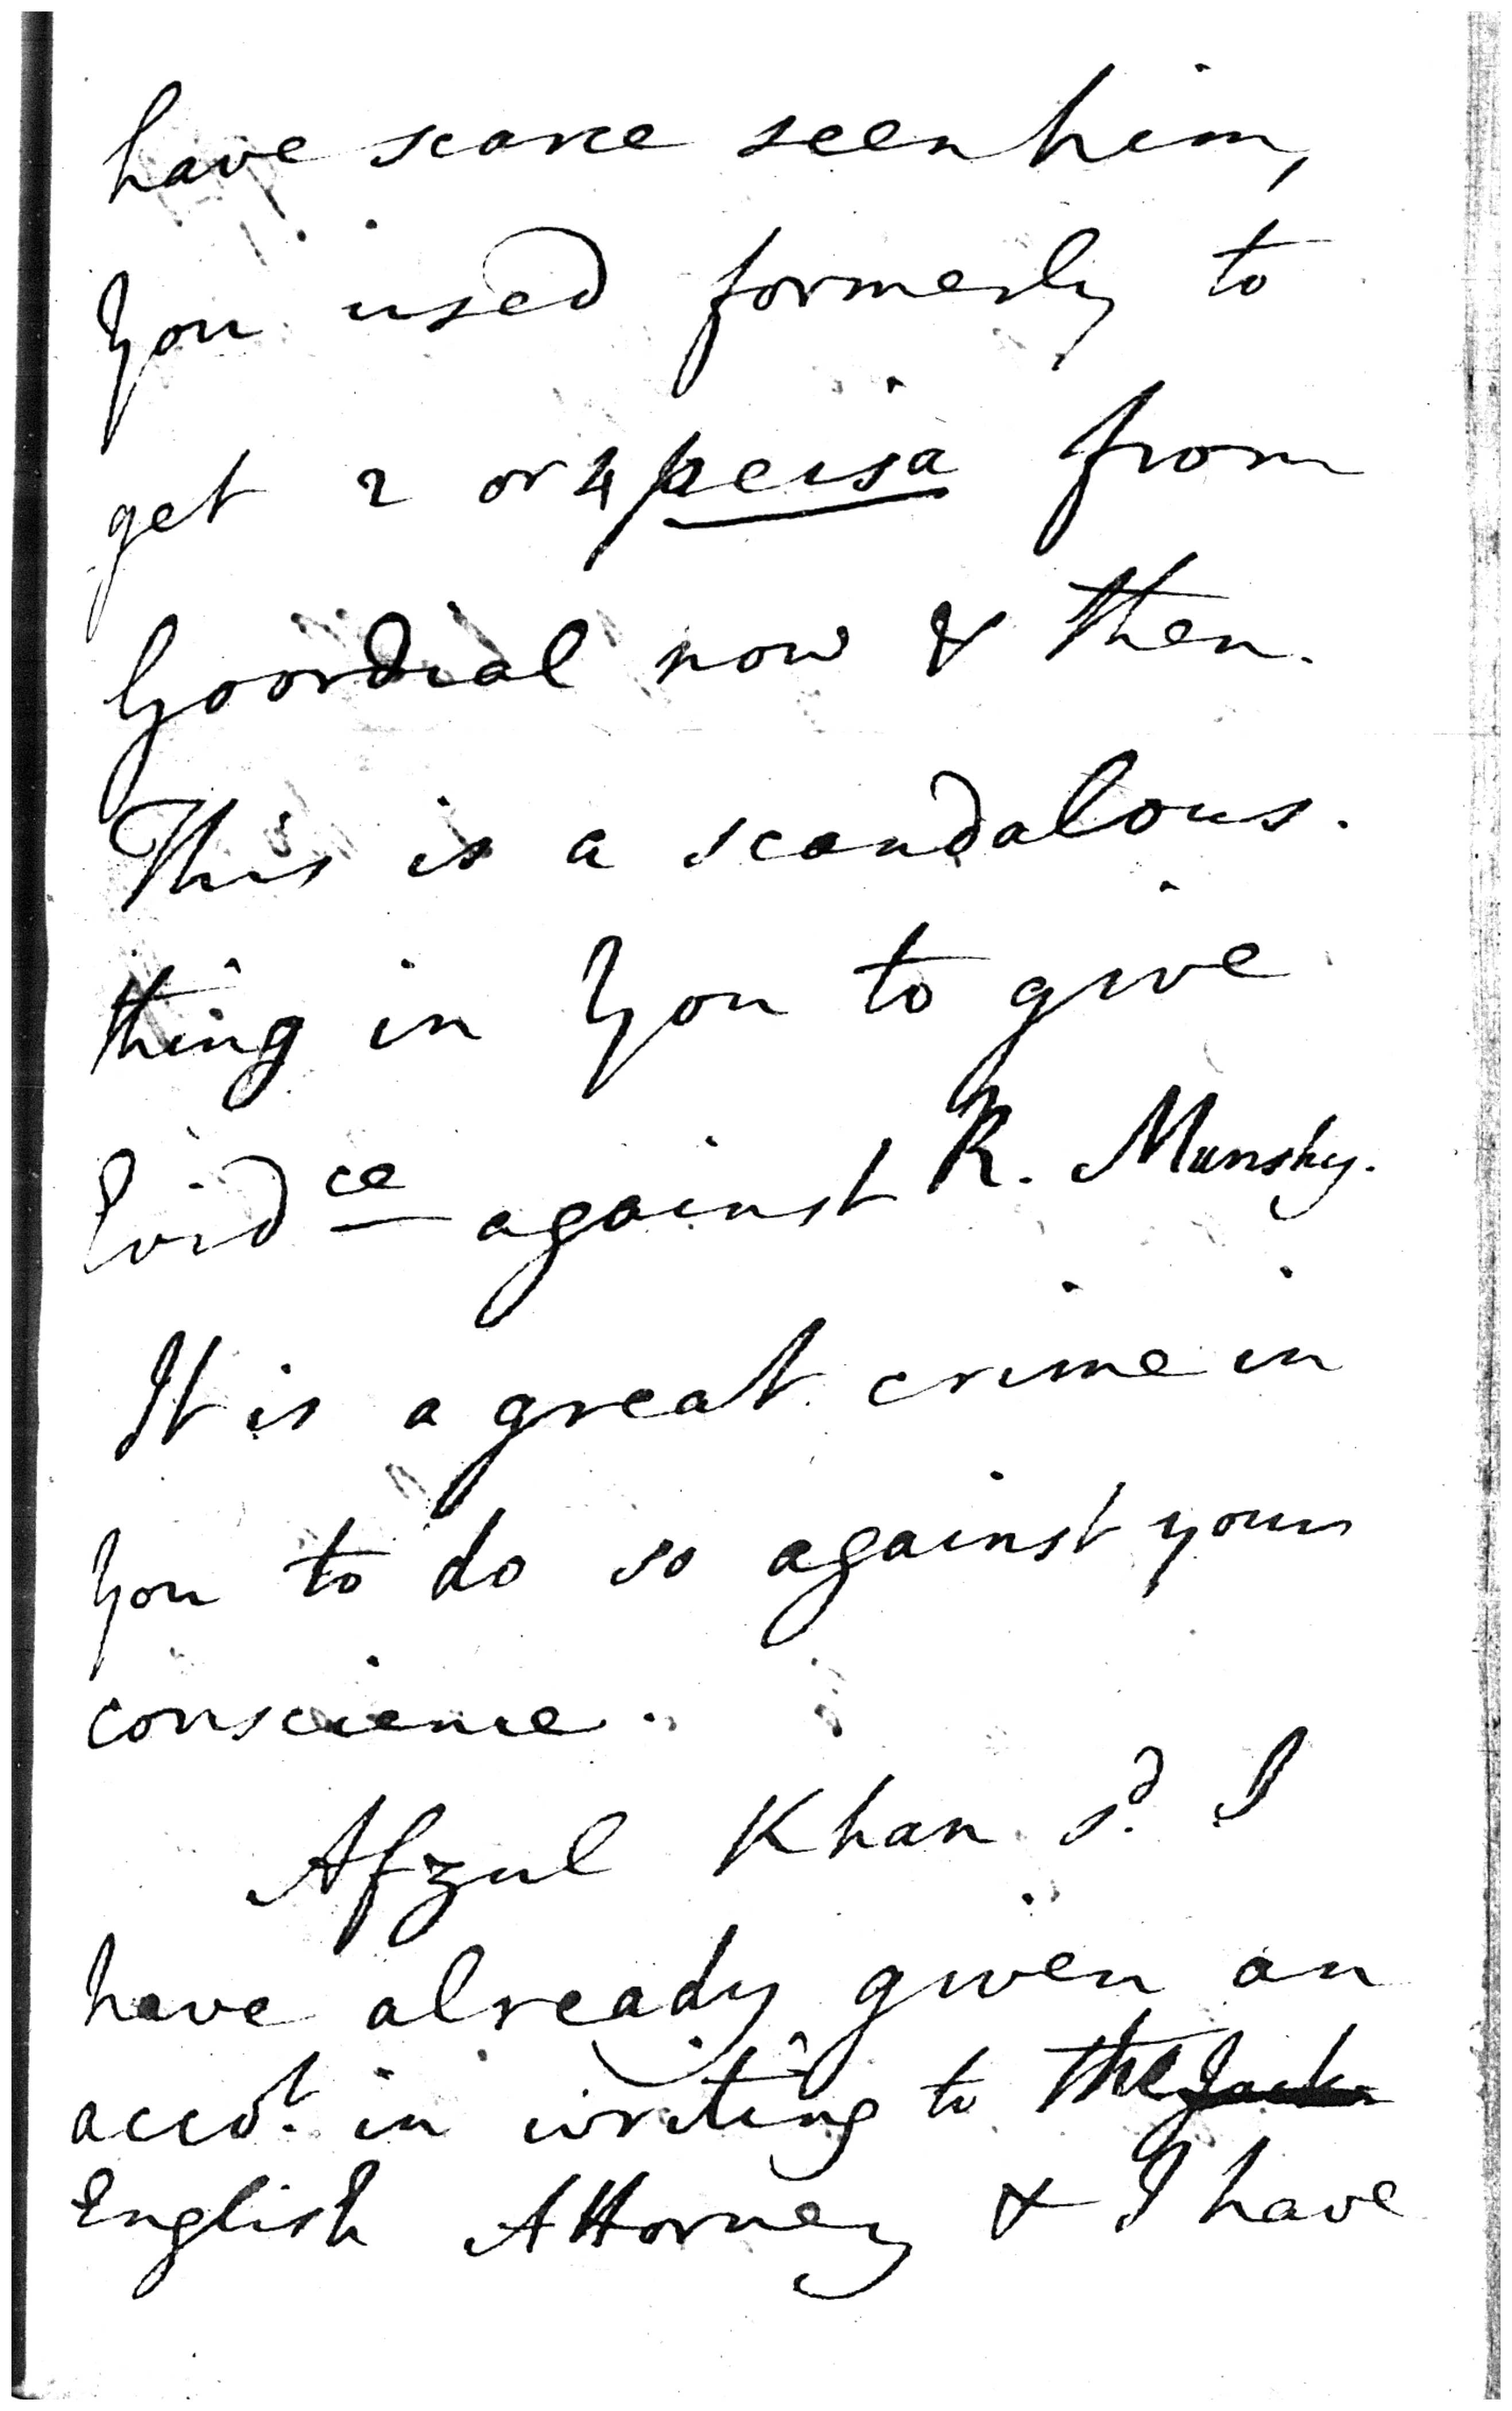 have scarce seen him,
You used formerly to
get 2 or 4 peisa from
Goordial now & then.
This is a scandalous
thing in You to give
Evid ce against R. Munshy.
It is a great crime in
You to do so against your
conscience.
Afzul Khan sd. I
have already given an
accot. in writing to the
English Attorney & I have